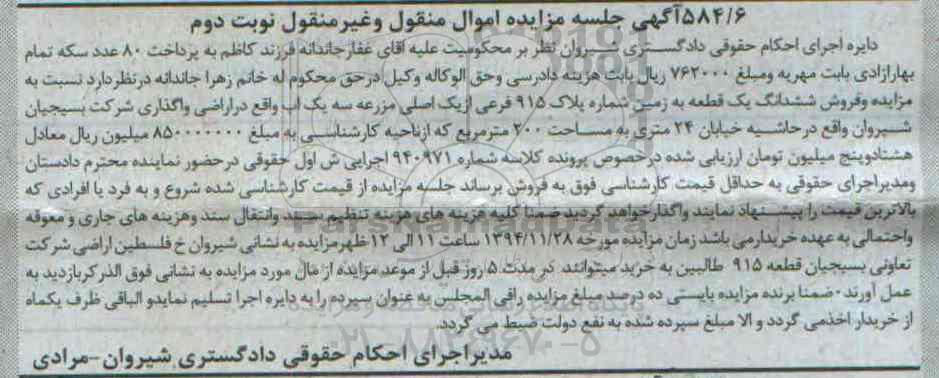 ۵۸۴/۶آگهی جلسه مزایده اموال منقول وغیرمنقول نوبت دوم
دایره اجرای احکام حقوقی دادگستری شیروان نظر بر محکومیت علیه آقای غفارجاندانه فرزند کاظم به پرداخت ۸۰ عدد سکه تمام
بهارآزادی بابت مهریه ومبلغ ۷۶۲۰۰۰ ریال بابت هزینه دادرسی وحق الوکاله وکیل درحق محکوم له خانم زهرا جاندانه درنظردارد نسبت به
مزایده وفروش ششدانگ یک قطعه به زمین شماره پلاک ۹۱۵ فرعی ازیک اصلی مزرعه سه یک آب واقع دراراضی واگذاری شرکت بسیجیان
شیروان واقع درحاشیه خیابان ۲۴ متری به مساحت ۲۰۰ مترمربع که ازناحیه کارشناسی به مبلغ ۸۵۰۰۰۰۰۰۰ میلیون ریال معادل
هشتادوپنج میلیون تومان ارزیابی شده درخصوص پرونده کلاسه شماره ۹۴۰۹۷۱ اجرایی ش اول حقوقی درحضور نماینده محترم دادستان
ومدیراجرای حقوقی به حداقل قیمت کارشناسی فوق به فروش برساند جلسه مزایده از قیمت کارشناسی شده شروع و به فرد یا افرادی که
بالاترین قیمت را پیشنهاد نمایند واگذارخواهد گردید ضمنا کلیه هزینه های هزینه تنظیم سند وانتقال سند وهزینه های جاری و معوقه
واحتمالی به عهده خریدارمی باشد زمان مزایده مورخه ۱۳۹۴/۱۱/۲۸ ساعت ۱۱ الی ۱۲ ظهرمزایده به نشانی شیروان خ فلسطین اراضی شرکت
تعاونی بسیجیان قطعه ۹۱۵ طالبین به خرید میتوانند در مدت ۵ روز قبل از موعد مزایده ازمال مورد مزایده به نشانی فوق الذکربازدید به
عمل آورند - ضمنا برنده مزایده بایستی ده درصد مبلغ مزایده رافی المجلس به عنوان سپرده را به دایره اجرا تسلیم نمایدو الباقی ظرف یکماه
از خریدار اخذمی گردد و الا مبلغ سپرده شده به نفع دولت ضبط می گردد.
مدیراجرای احکام حقوقی دادگستری شیروان -مرادی
ParsNamadData
۰۲۱-۸۸۳۴۹۶۷۰-۵